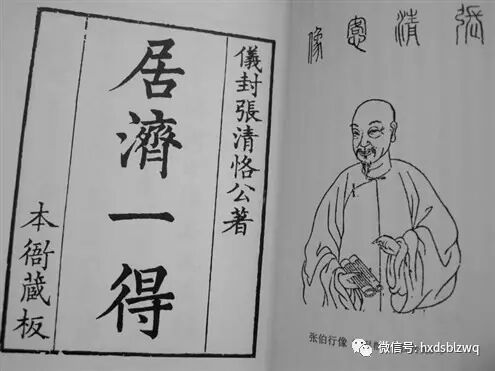 儀封張清恪公著
居濟一得
本衙藏板
張清愙像
张伯行像
微信号: hxdsblzwq